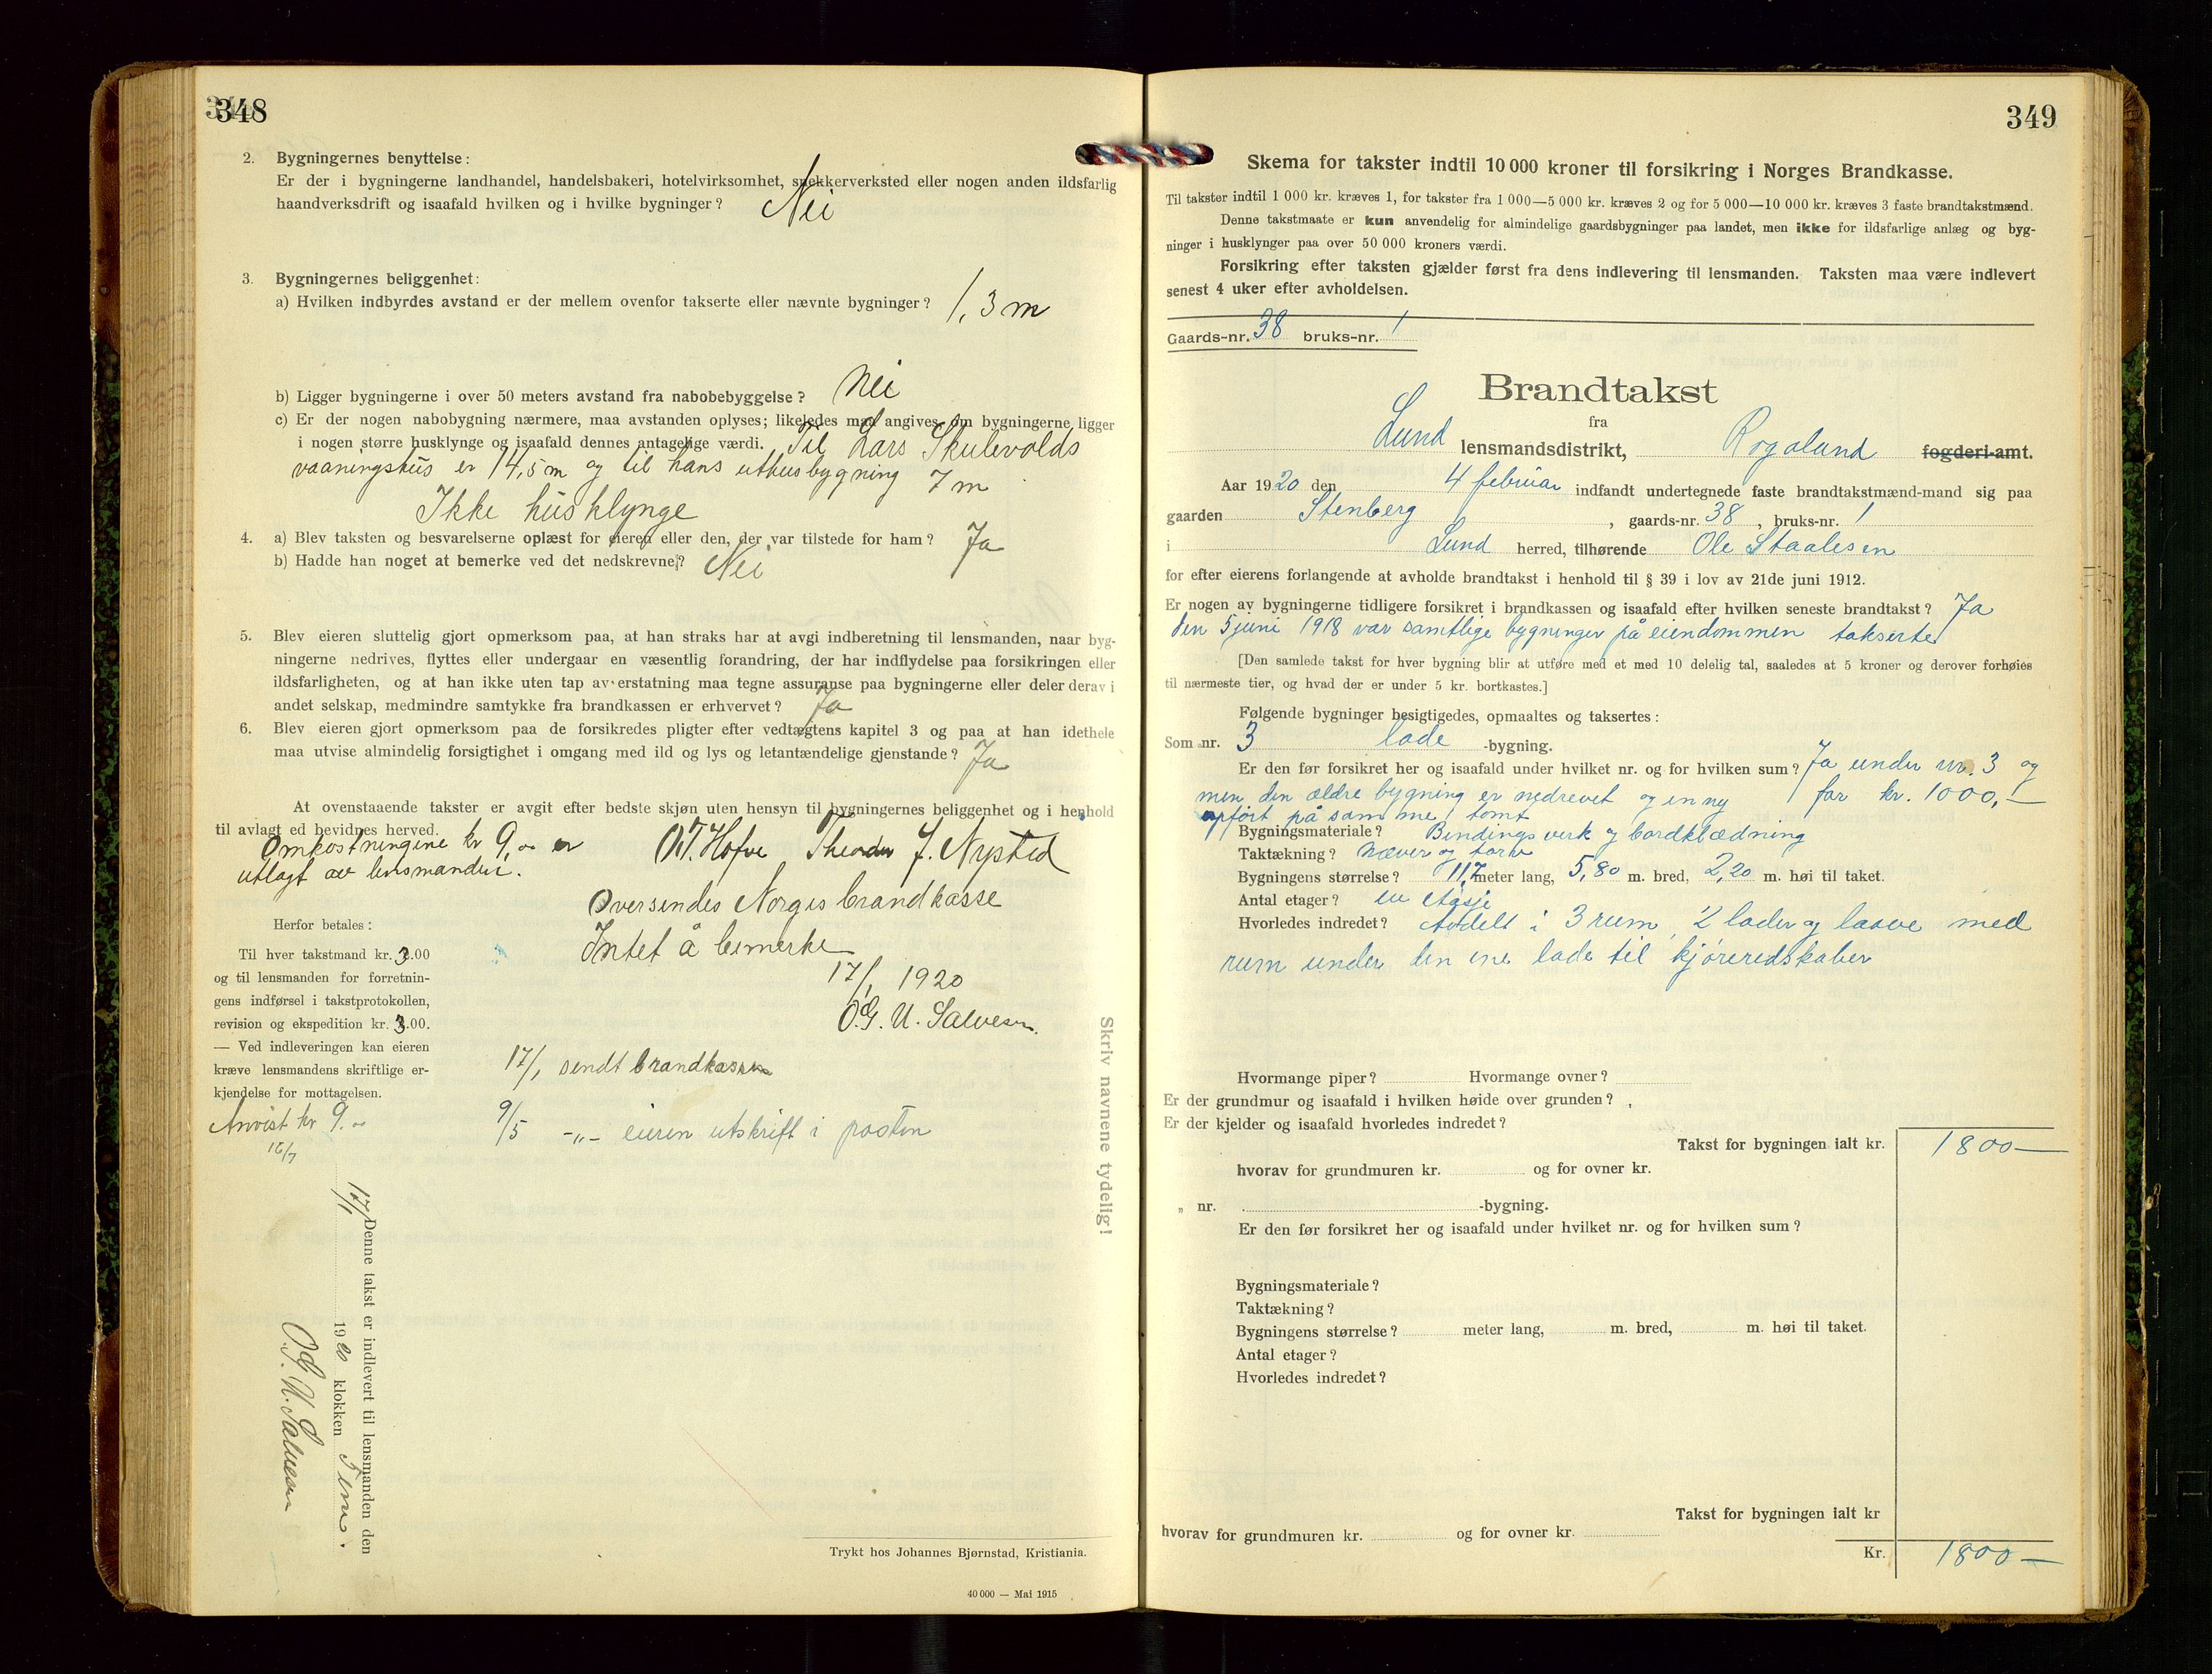 348
2. Bygningernes benyttelse:
Er der i bygningerne landhandel, handelsbakeri, hotelvirksomhet, snekkerverksted eller nogen anden ildsfarlig
haandverksdrift og isaafald hvilken og i hvilke bygninger? Nei
3. Bygningernes beliggenhet:
a) Hvilken indbyrdes avstand er der mellem ovenfor takserte eller nævnte bygninger? 1,3 m
b) Ligger bygningerne i over 50 meters avstand fra nabobebyggelse? Nei
c) Er der nogen nabobygning nærmere, maa avstanden oplyses; likeledes maa angives, om bygningerne ligger
i nogen større husklynge og isaafald dennes antagelige værdi. Til Lars Skulevolds
vaaningshus er 14,5 m og til hans uthusbygning 7 m
Ikke husklynge
4. a) Blev taksten og besvarelserne oplæst for eieren eller den, der var tilstede for ham? Ja
b) Hadde han noget at bemerke ved det nedskrevne? Nei
5. Blev eieren sluttelig gjort opmerksom paa, at han straks har at avgi indberetning til lensmanden, naar byg-
ningerne nedrives, flyttes eller undergaar en væsentlig forandring, der har indflydelse paa forsikringen eller
ildsfarligheten, og at han ikke uten tap av erstatning maa tegne assuranse paa bygningerne eller deler derav i
andet selskap, medmindre samtykke fra brandkassen er erhvervet? Ja
6. Blev eieren gjort opmerksom paa de forsikredes pligter efter vedtægtens kapitel 3 og paa at han idethele
maa utvise almindelig forsigtighet i omgang med ild og lys og letantændelige gjenstande? Ja
At ovenstaaende takster er avgit efter bedste skjøn uten hensyn til bygningernes beliggenhet og i henhold
til avlagt ed bevidnes herved.
Omkostningene kr 9,00 er O.T. Hofve Theodor J. Nysted
utlagt av lensmanden.
Oversendes Norges brandkasse
Intet å bemerke
17/1 1920
O.G. U. Salvesen.
Herfor betales:
Til hver takstmand kr. 3.00
og til lensmanden for forretnin-
gens indførsel i takstprotokollen,
revision og ekspedition kr. 3.00.
— Ved indleveringen kan eieren
kræve lensmandens skriftlige er-
kjendelse for mottagelsen.
Anvist kr 9.00
16/7
17/1 sendt brandkassen
9/5 -"- eieren utskrift i posten
Skriv navnene tydelig!
Denne takst er indlevert til lensmanden den
17/1 1920 klokken Fem.
O.G. U. Salvesen
Trykt hos Johannes Bjørnstad, Kristiania.
40 000 — Mai 1915
349
Skema for takster indtil 10 000 kroner til forsikring i Norges Brandkasse.
Til takster indtil 1 000 kr. kræves 1, for takster fra 1 000—5 000 kr. kræves 2 og for 5 000—10 000 kr. kræves 3 faste brandtakstmænd.
Denne takstmaate er kun anvendelig for almindelige gaardsbygninger paa landet, men ikke for ildsfarlige anlæg og byg-
ninger i husklynger paa over 50 000 kroners værdi.
Forsikring efter taksten gjælder først fra dens indlevering til lensmanden. Taksten maa være indlevert
senest 4 uker efter avholdelsen.
Gaards-nr. 38 bruks-nr. 1
Brandtakst
fra
Lund lensmandsdistrikt, Rogaland fogderi-amt.
Aar 1920 den 4 februar indfandt undertegnede faste brandtakstmænd-mand sig paa
gaarden Stenberg, gaards-nr. 38, bruks-nr. 1
i Lund herred, tilhørende Ole Staalesen
for efter eierens forlangende at avholde brandtakst i henhold til § 39 i lov av 21de juni 1912.
Er nogen av bygningerne tidligere forsikret i brandkassen og isaafald efter hvilken seneste brandtakst? Ja
den 5 juni 1918 var samtlige bygninger på eiendommen takserte
[Den samlede takst for hver bygning blir at utføre med et med 10 delelig tal, saaledes at 5 kroner og derover forhøies
til nærmeste tier, og hvad der er under 5 kr. bortkastes.]
Følgende bygninger besigtigedes, opmaaltes og taksertes:
Som nr. 3 lade -bygning.
Er den før forsikret her og isaafald under hvilket nr. og for hvilken sum? Ja under nr. 3 og
men den ældre bygning er nedrevet og en ny for kr. 1000,—
opført på samme tomt
Bygningsmateriale? Bindingsverk og bordklædning
Taktækning? Næver og torv
Bygningens størrelse? 11,7 meter lang, 5,80 m. bred, 2,20 m. høi til taket.
Antal etager? en etasje
Hvorledes indredet? Avdelt i 3 rum, 2 lader og laave med
rum under den ene lade til kjøreredskaber
Hvormange piper? Hvormange ovner?
Er der grundmur og isaafald i hvilken høide over grunden?
Er der kjelder og isaafald hvorledes indredet?
Takst for bygningen ialt kr. 1800—
hvorav for grundmuren kr. og for ovner kr.
„ nr. -bygning.
Er den før forsikret her og isaafald under hvilket nr. og for hvilken sum?
Bygningsmateriale?
Taktækning?
Bygningens størrelse? meter lang, m. bred, m. høi til taket.
Antal etager?
Hvorledes indredet?
Takst for bygningen ialt kr
hvorav for grundmuren kr. og for ovner kr.
Kr. 1800—